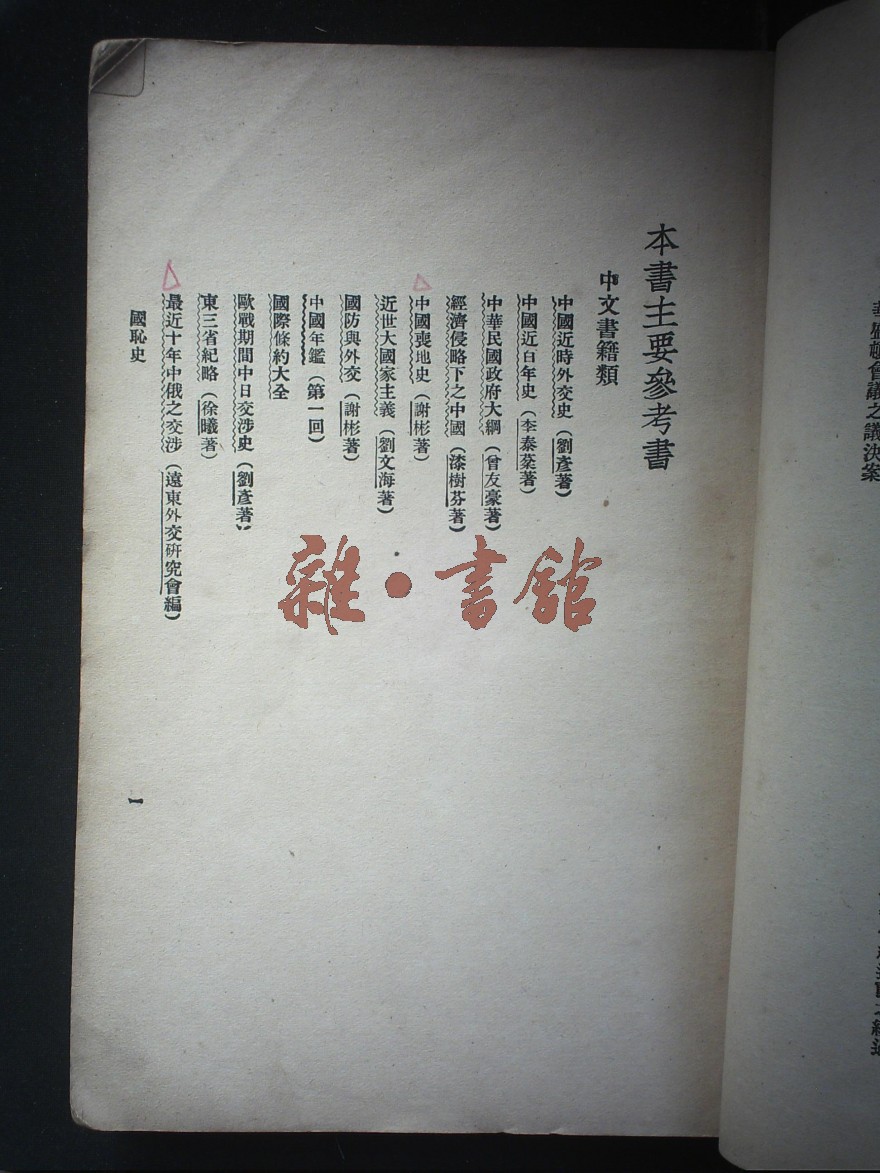 本書主要參考書
中文書籍類
中國近時外交史（劉彥著）
中國近百年史（李泰棻著）
中華民國政府大綱（曾友豪著）
經濟侵略下之中國（漆樹芬著）
中國喪地史（謝彬著）
近世大國家主義（劉文海著）
國防與外交（謝彬著）
中國年鑑（第一回）
國際條約大全
歐戰期間中日交涉史（劉彥著）
東三省紀略（徐曦著）
最近十年中俄之交涉（遠東外交研究會編）
國恥史
一
雜·書館
華盛頓會議之議決案